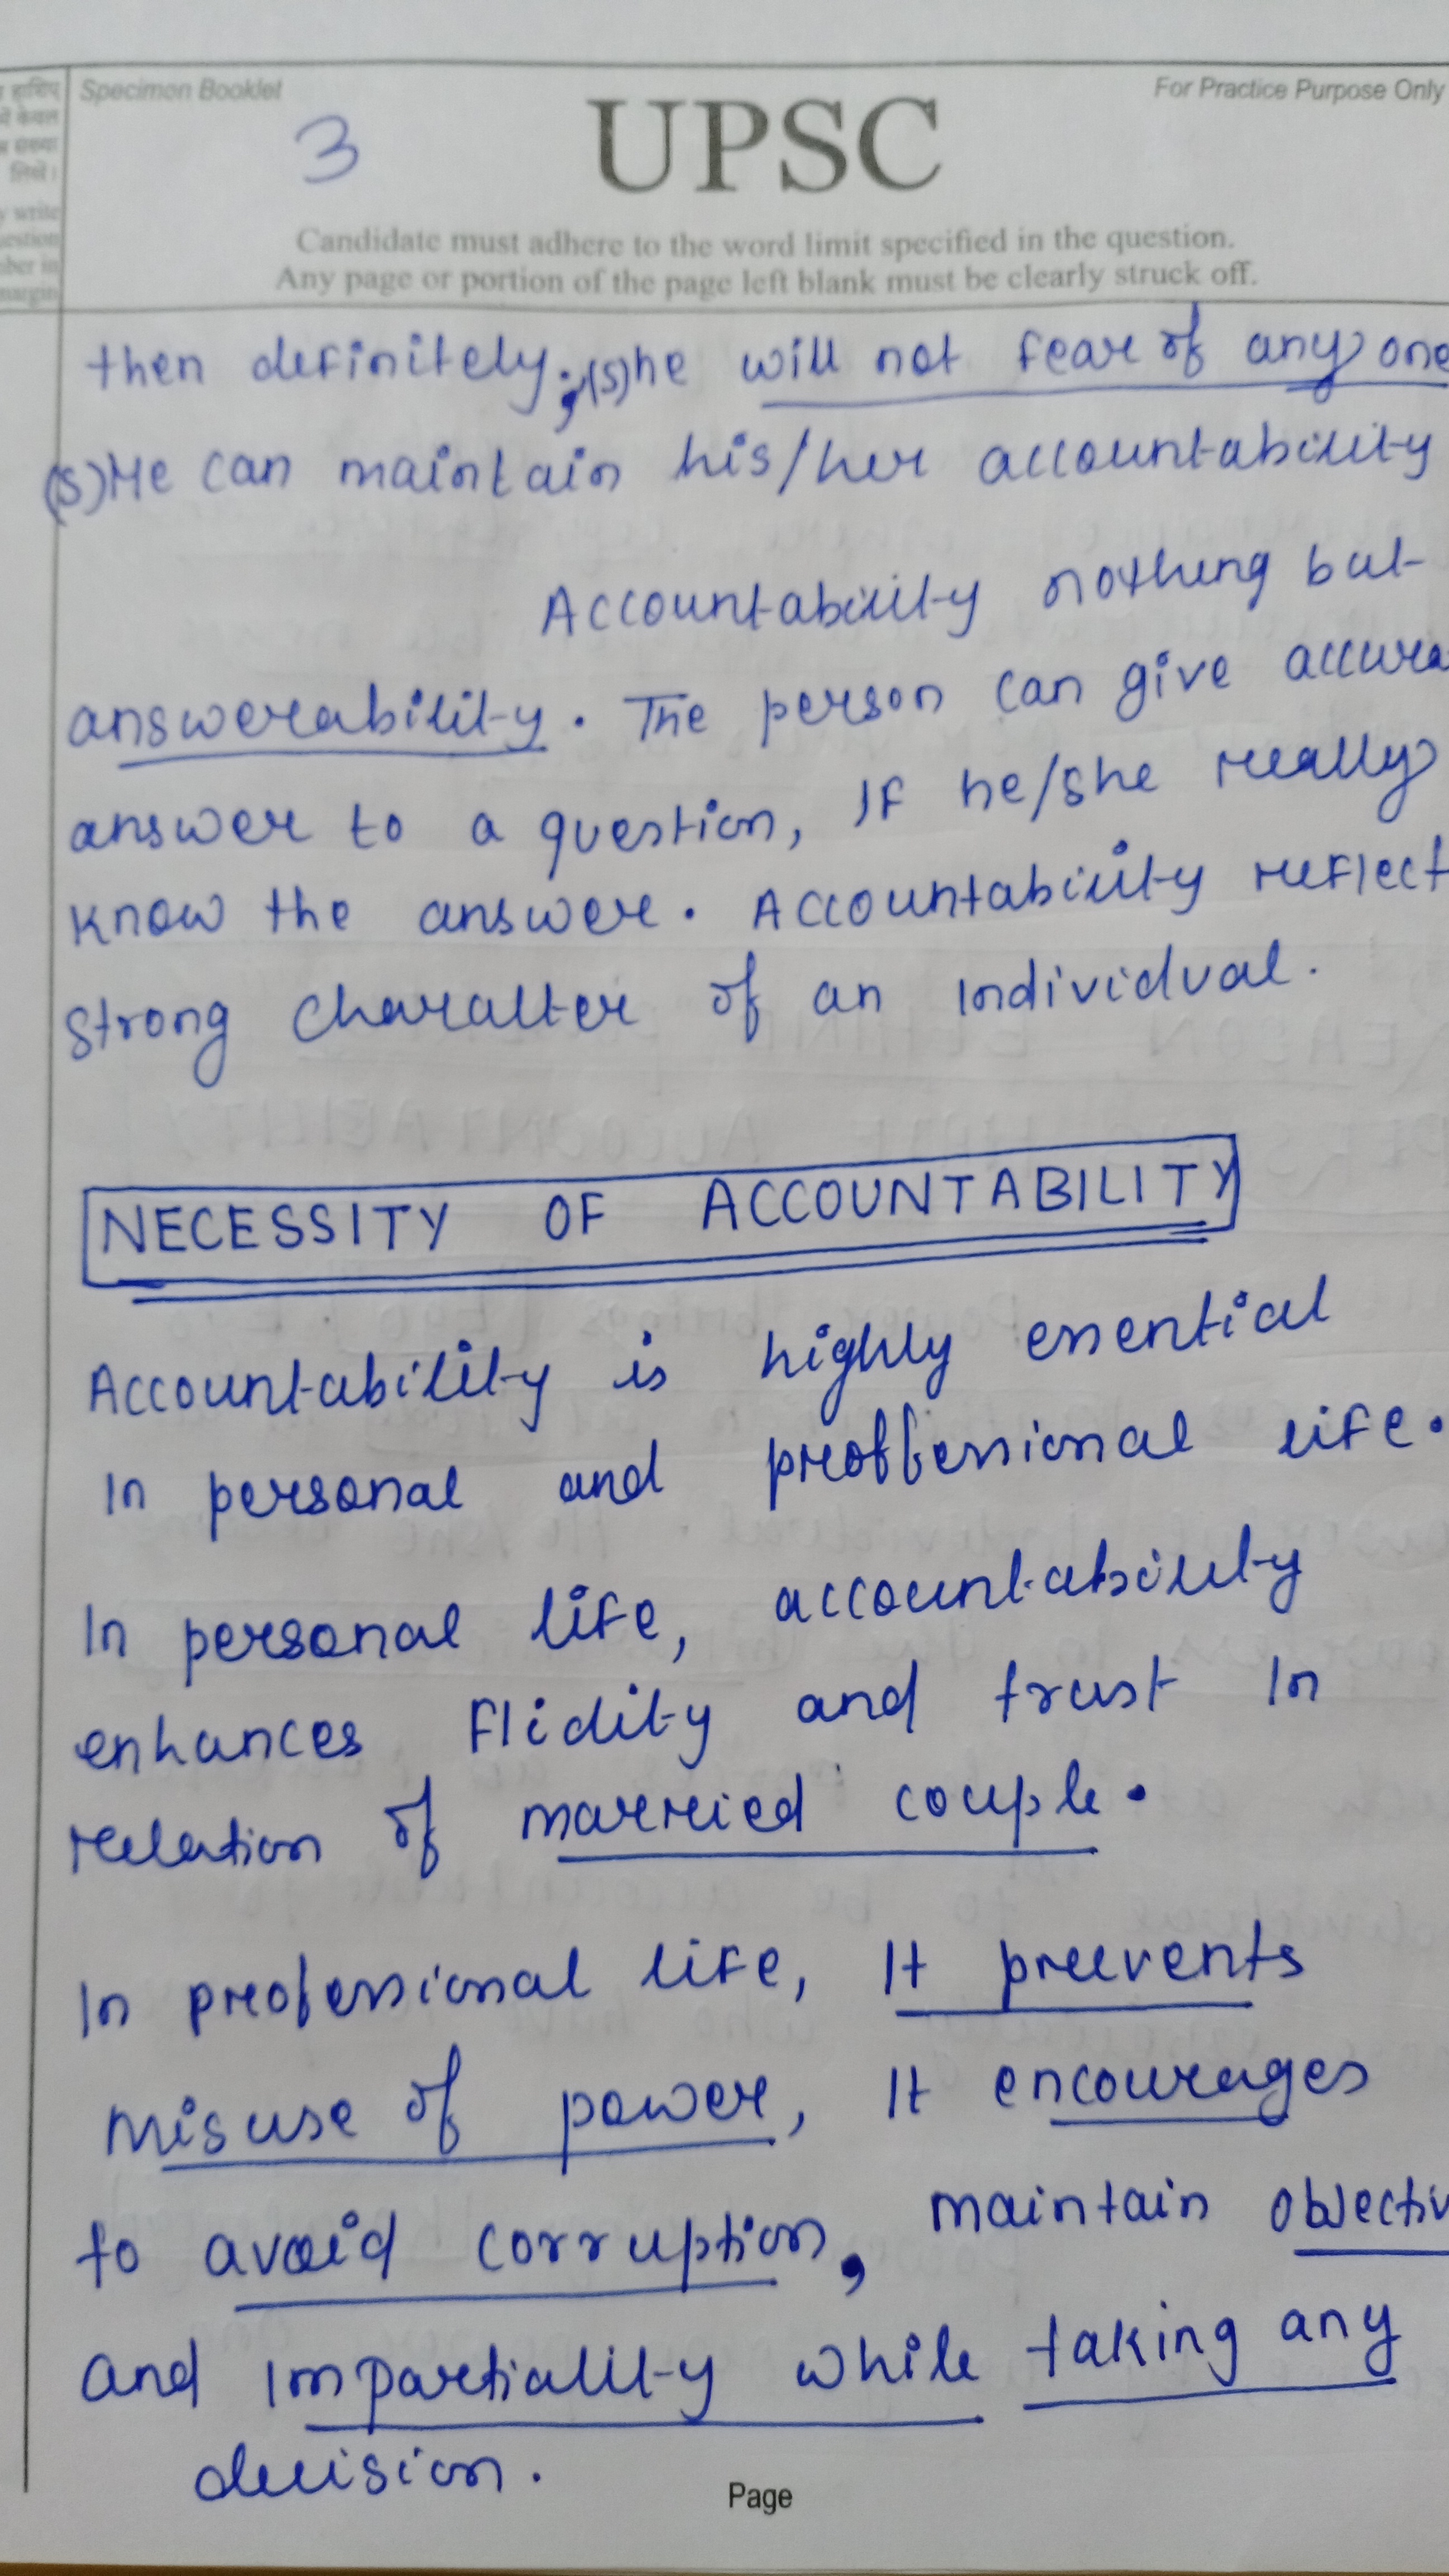 र हाशिए
में केवल
न संख्या
लिखें।
y write
uestion
nber in
margin
Specimen Booklet
For Practice Purpose Only
3
UPSC
Candidate must adhere to the word limit specified in the question.
Any page or portion of the page left blank must be clearly struck off.
then definitely; (s)he will not fear of any one
(S)He can maintain his/her accountability
Accountability nothing but
answerability. The person can give accura
answer to a question, If he/she really
know the answer. Accountability reflect
strong character of an individual.
NECESSITY OF ACCOUNTABILITY
Accountability is highly essential
In personal and proffessional life.
In personal life, accountability
enhances flidity and trust In
relation of married couple.
In professional life, It prevents
misuse of power, It encourages
to avoid corruption, maintain objectiv
and impartiality while taking any
decision.
Page